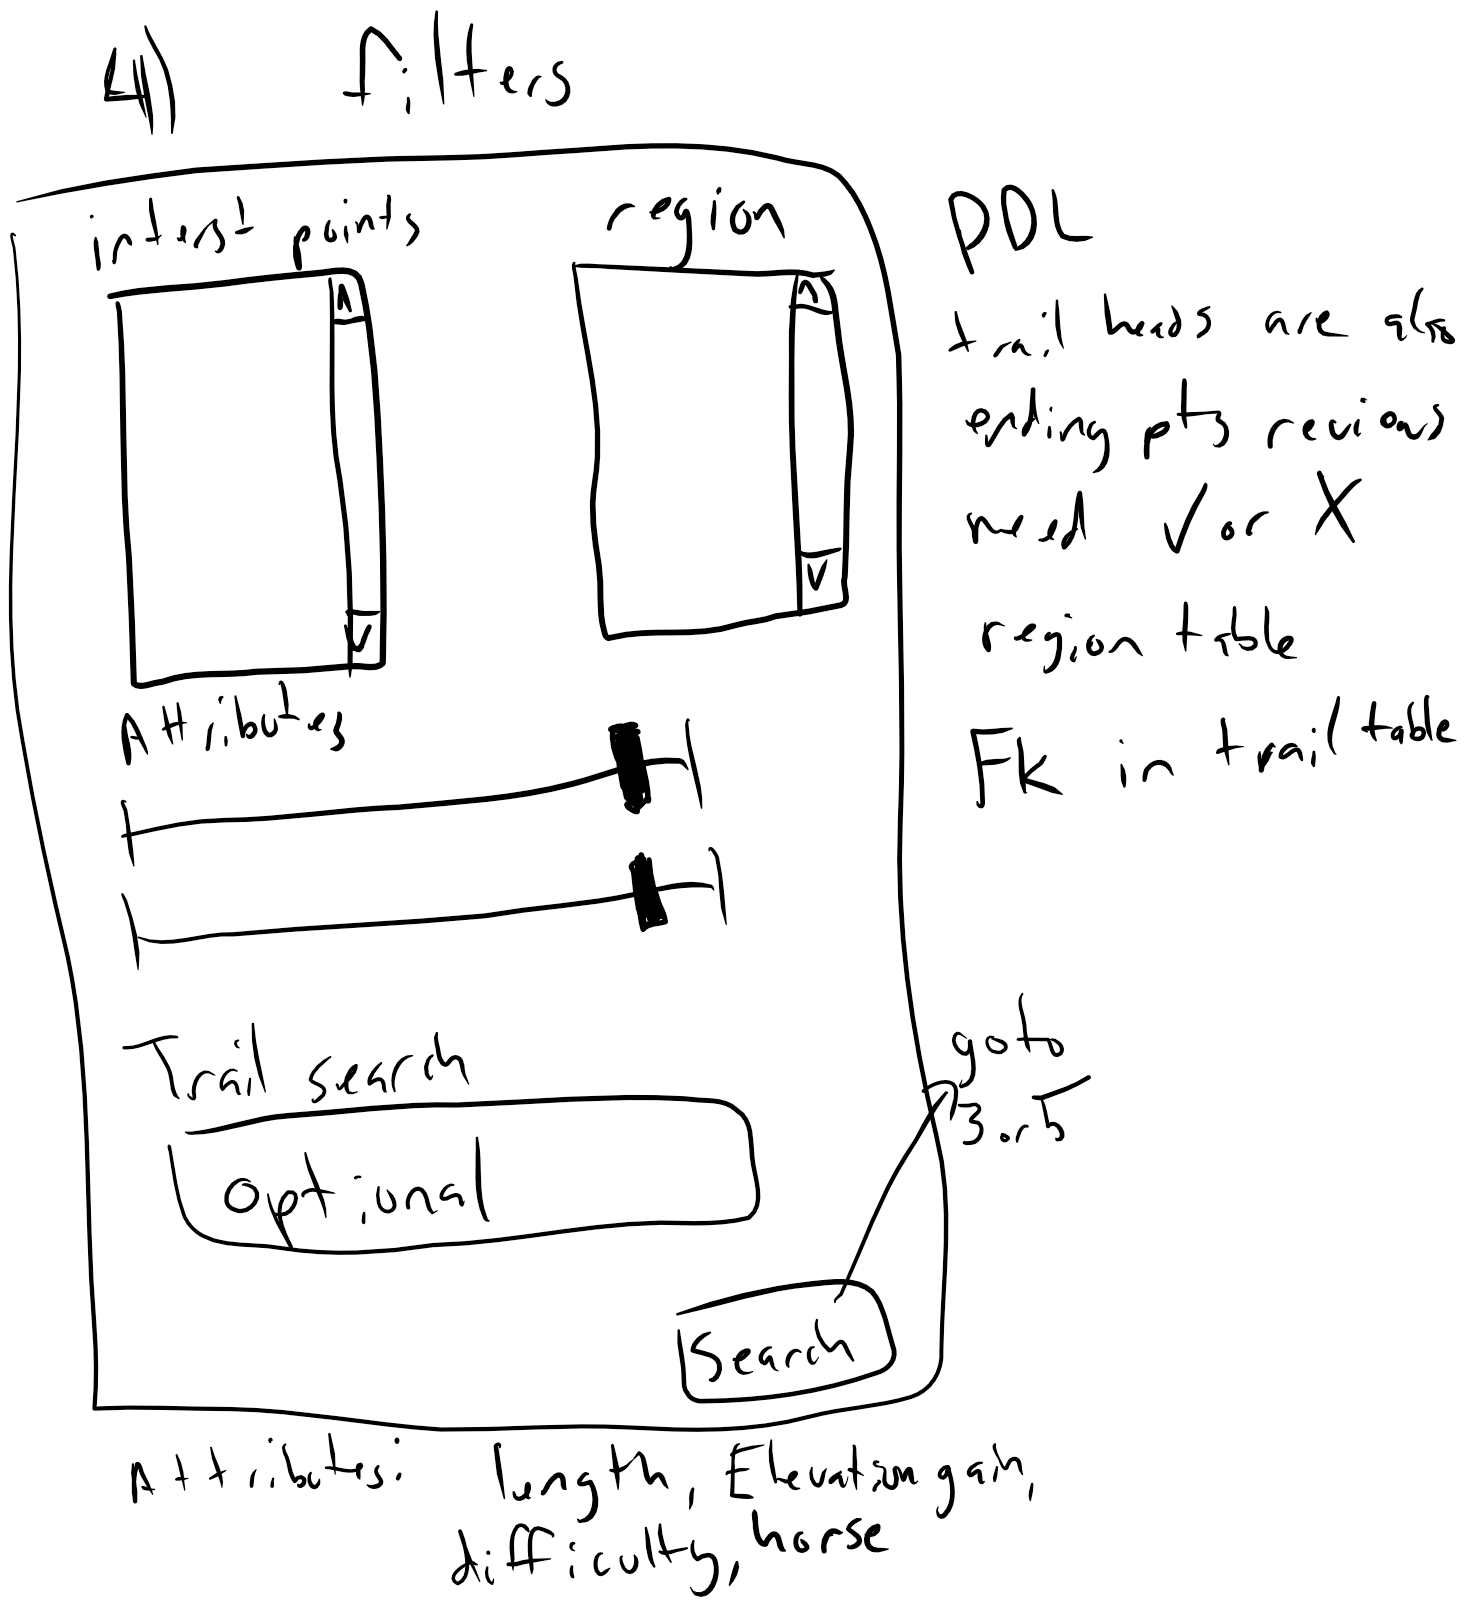 4) filters
interst points
region
Attributes
Trail search
optional
Search
PDL
trail heads are also
ending pts reviews
need ✓ or X
region table
Fk in trail table
goto
3 or 5
Attributes: length, Elevation gain,
difficulty, horse